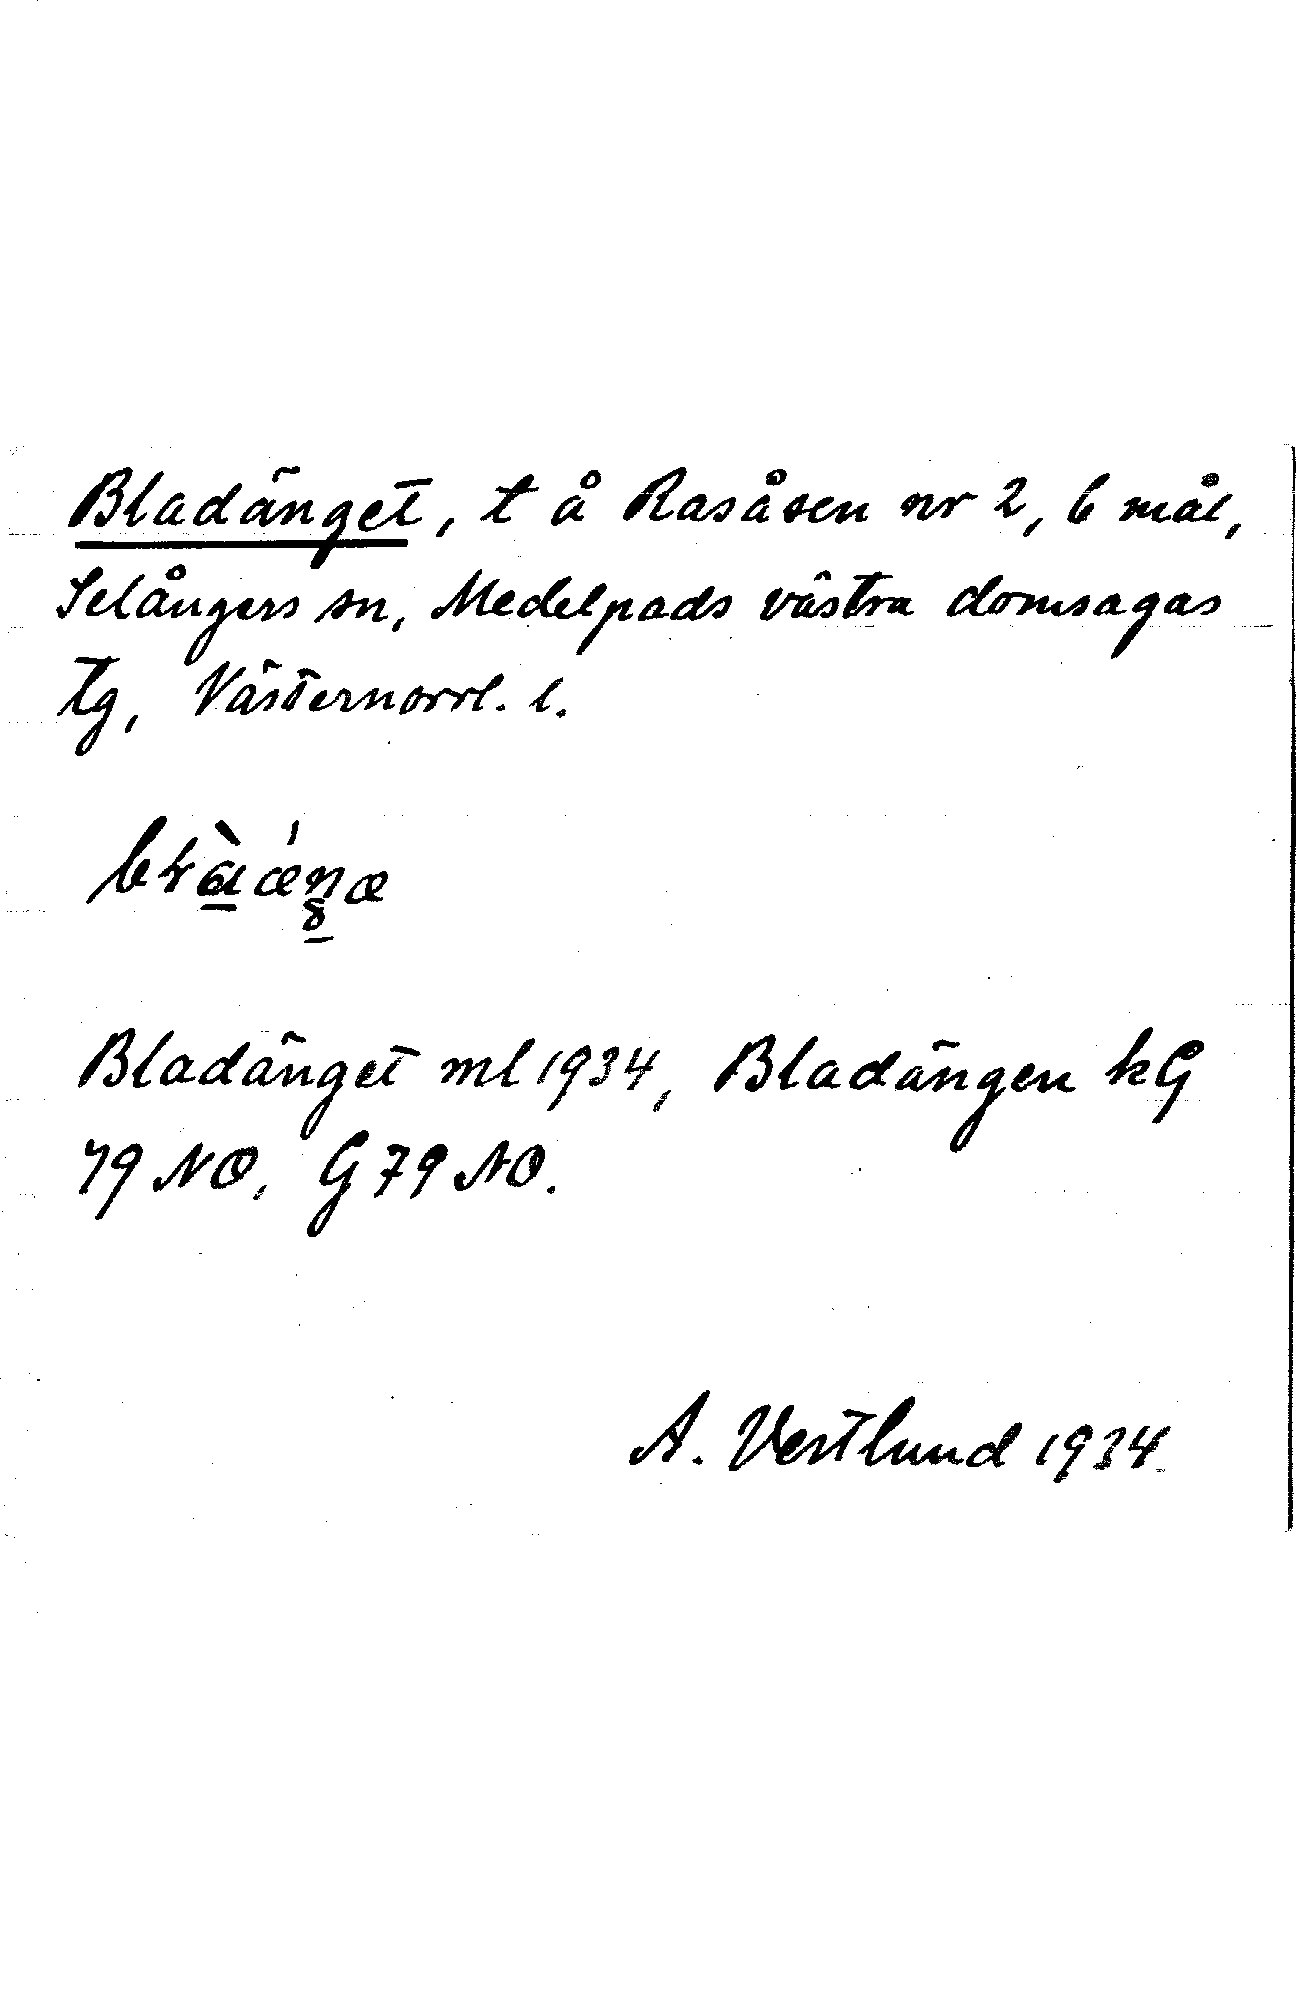 Bladänget, t å Rasåsen nr 2, 6 mål,
Selångers sn, Medelpads västra domsagas
tg, Västernorrl. l.
Bladänget ml 1934, Bladängen kG
79 NO, G 79 NO.
A. Vestlund 1934